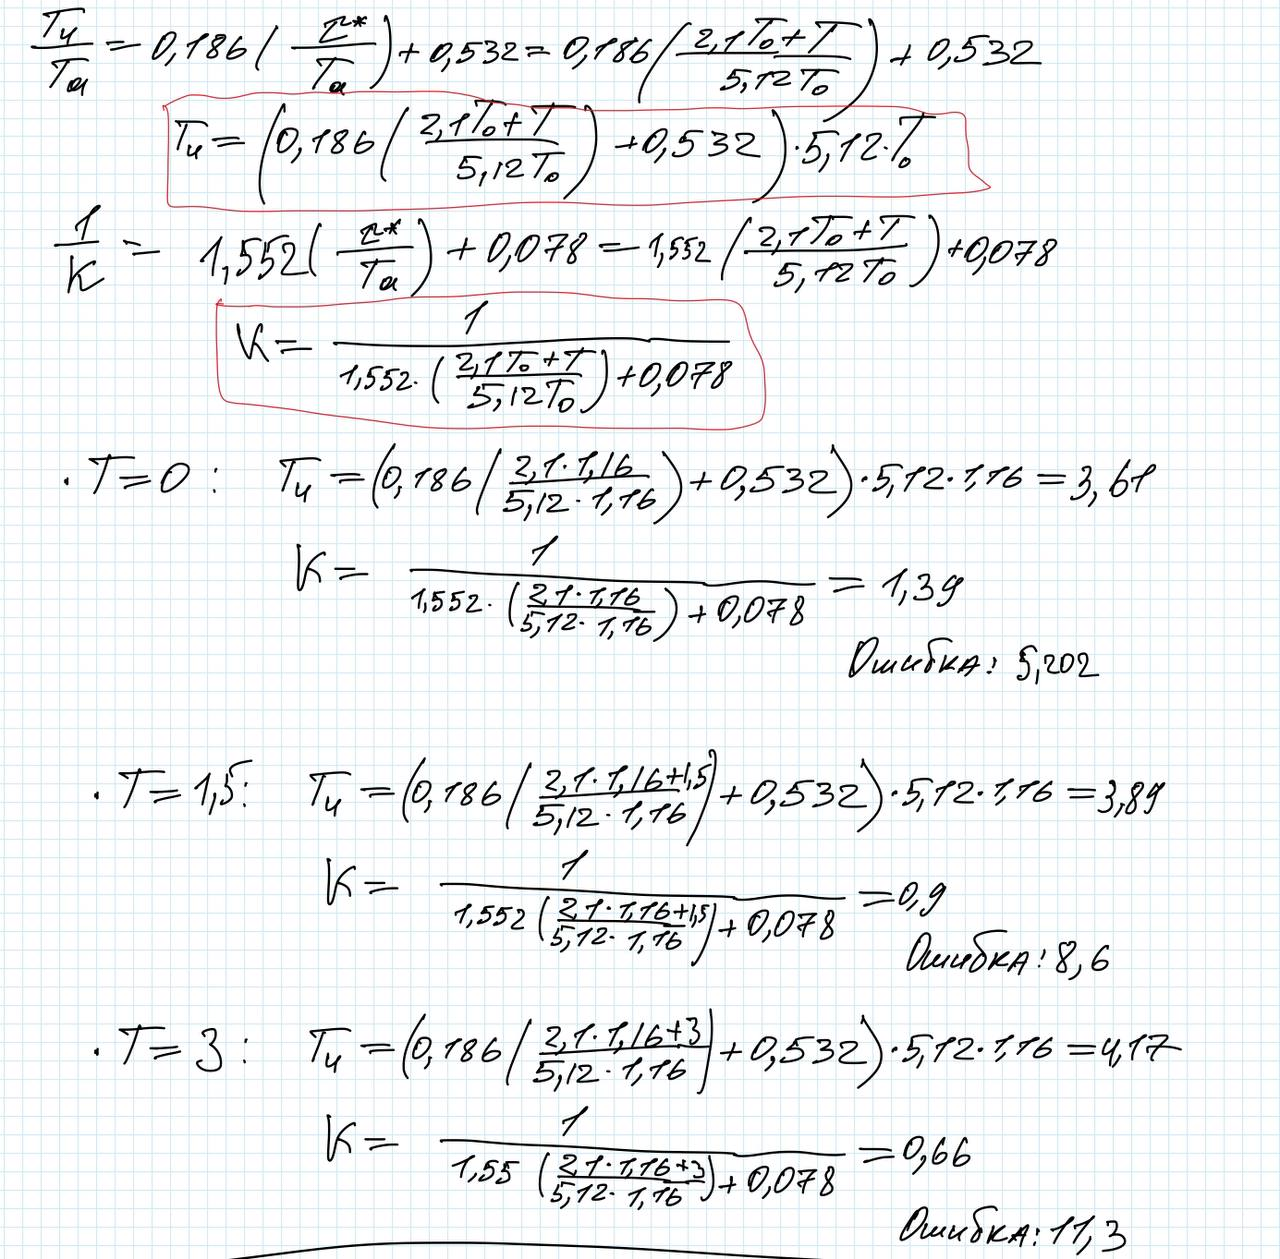 Tи/Ta = 0,186(τ*/Ta) + 0,532 = 0,186((2,1T₀+T)/(5,12T₀)) + 0,532
Tи = (0,186((2,1T₀+T)/(5,12T₀)) + 0,532)·5,12·T₀
1/K = 1,552(τ*/Ta) + 0,078 = 1,552((2,1T₀+T)/(5,12T₀)) + 0,078
K = 1/(1,552·((2,1T₀+T)/(5,12T₀)) + 0,078)
· T = 0 : Tи = (0,186((2,1·1,16)/(5,12·1,16)) + 0,532)·5,12·1,16 = 3,61
K = 1/(1,552·((2,1·1,16)/(5,12·1,16)) + 0,078) = 1,39
Ошибка: 5,202
· T = 1,5 : Tи = (0,186((2,1·1,16+1,5)/(5,12·1,16)) + 0,532)·5,12·1,16 = 3,89
K = 1/(1,552((2,1·1,16+1,5)/(5,12·1,16)) + 0,078) = 0,9
Ошибка: 8,6
· T = 3 : Tи = (0,186((2,1·1,16+3)/(5,12·1,16)) + 0,532)·5,12·1,16 = 4,17
K = 1/(1,55((2,1·1,16+3)/(5,12·1,16)) + 0,078) = 0,66
Ошибка: 11,3